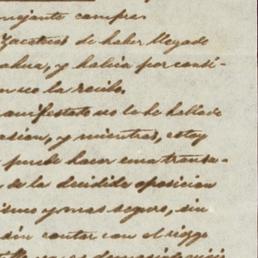 mejante compra.
Zacatecas de haber llegado
ahua, y habia por condi-
on su la recibo.
anifestado no lo he hablado
asion, y mientras, estoy
puede hacer una transa-
de la decidida oposicion
ismo y mas seguro, sin
sin contar con el riesgo